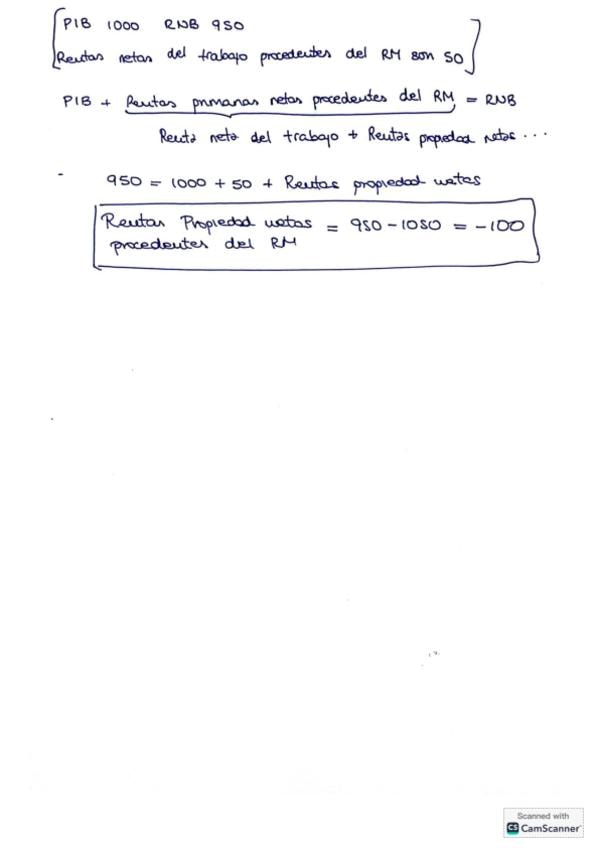 PIB 1000 RNB 950
Rentas netas del trabajo procedentes del RM son 50
PIB + Rentas primarias netas procedentes del RM = RNB
Renta neta del trabajo + Rentas propiedad netas ...
- 950 = 1000 + 50 + Rentas propiedad netas
Rentas Propiedad netas = 950 - 1050 = -100
procedentes del RM
Scanned with
CS CamScanner